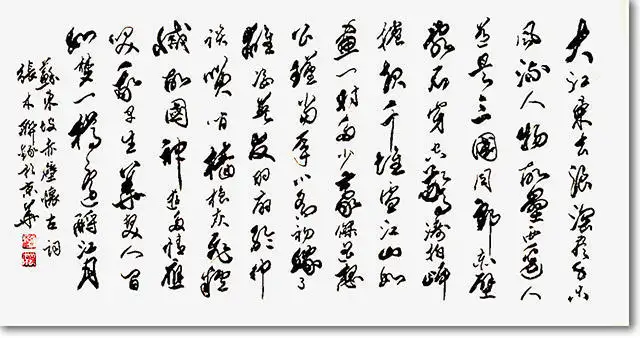 大江東去浪淘盡千古
風流人物故壘西邊人
道是三國周郎赤壁
亂石穿空驚濤拍岸
捲起千堆雪江山如
畫一時多少豪傑遙想
公瑾當年小喬初嫁了
雄姿英發羽扇綸巾
談笑間檣櫓灰飛煙
滅故國神遊多情應
笑我早生華髮人間
如夢一樽還酹江月
蘇東坡赤壁懷古詞
張木聯錄於京華